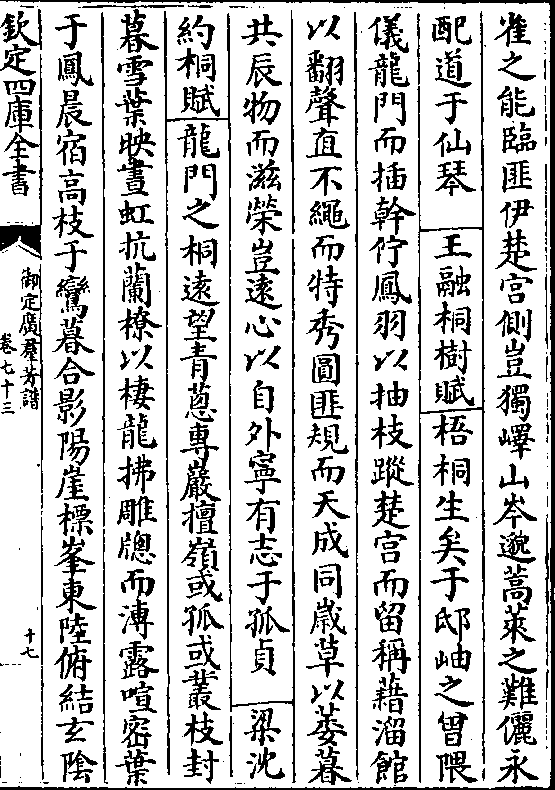 雀之能臨匪伊楚宮側豈獨嶧山岑邈蒿萊之難儷永
配道于仙琴　王融桐樹賦梧桐生矣于邸岫之曽隈
儀龍門而插幹佇鳳羽以抽枝蹤楚宫而留稱藉溜館
以翻聲直不繩而特秀圓匪規而天成同歲草以萎暮
共辰物而滋榮豈遠心以自外寧有志于孤貞　梁沈
約桐賦龍門之桐遠望青蔥專巖擅嶺或孤或叢枝封
暮雪葉映晝虹抗蘭橑以棲龍拂雕牕而溥露喧密葉
于鳳晨宿高枝于鸞暮合影陽崖標峯東陸俯結玄陰
欽定四庫全書
御定廣羣芳譜
卷七十三
十七